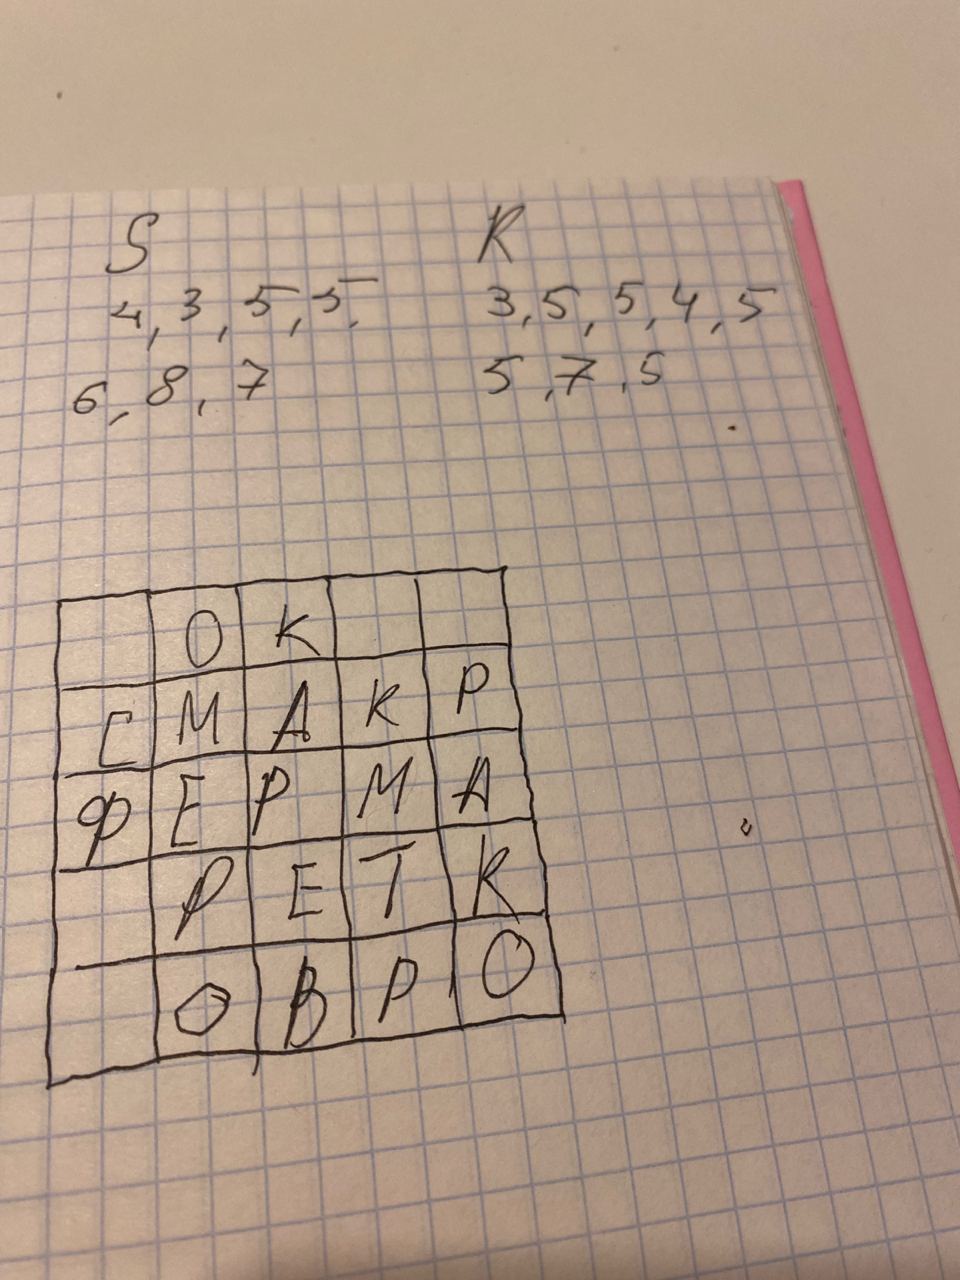 S R
4, 3, 5, 5, 3, 5, 5, 4, 5
6, 8, 7 5, 7, 5
О К
С М А К Р
Ф Е Р М А
Р Е Т К
О В Р О